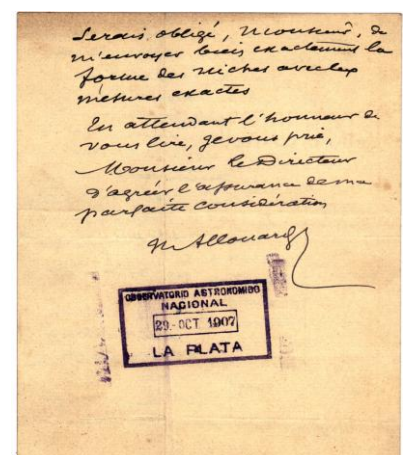 Serais obligé, Monsieur, de
m'envoyer bien exactement la
forme des niches avec les
mesures exactes
En attendant l'honneur de
vous lire, je vous prie,
Monsieur le Directeur
d'agréer l'assurance de ma
parfaite considération
OBSERVATORIO ASTRONOMICO
NACIONAL
29.-OCT 1907
LA PLATA